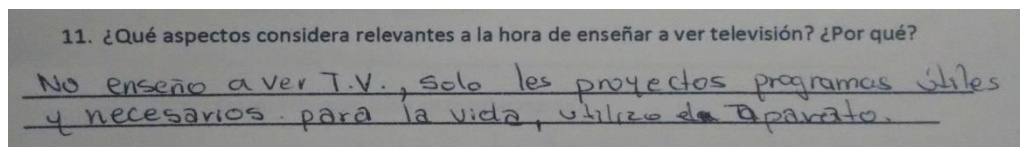 11. ¿Qué aspectos considera relevantes a la hora de enseñar a ver televisión? ¿Por qué?
No enseño a ver T.V., solo les proyectos programas útiles
y necesarios para la vida, utilizo aparato.